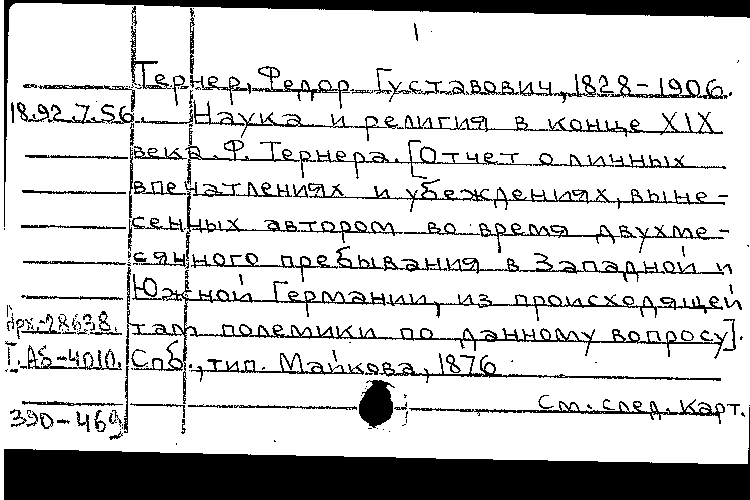 1
Тернер, Федор Густавович, 1828-1906.
18.92.7.56. Наука и религия в конце XIX
века. Ф. Тернера. [Отчет о личных
впечатлениях и убеждениях, выне-
сенных автором во время двухме-
сячного пребывания в Западной и
Южной Германии, из происходящей
Арх.-28638. там полемики по данному вопросу].
I. Аб-4010. Спб., тип. Майкова, 1876
См. след. карт.
390-469